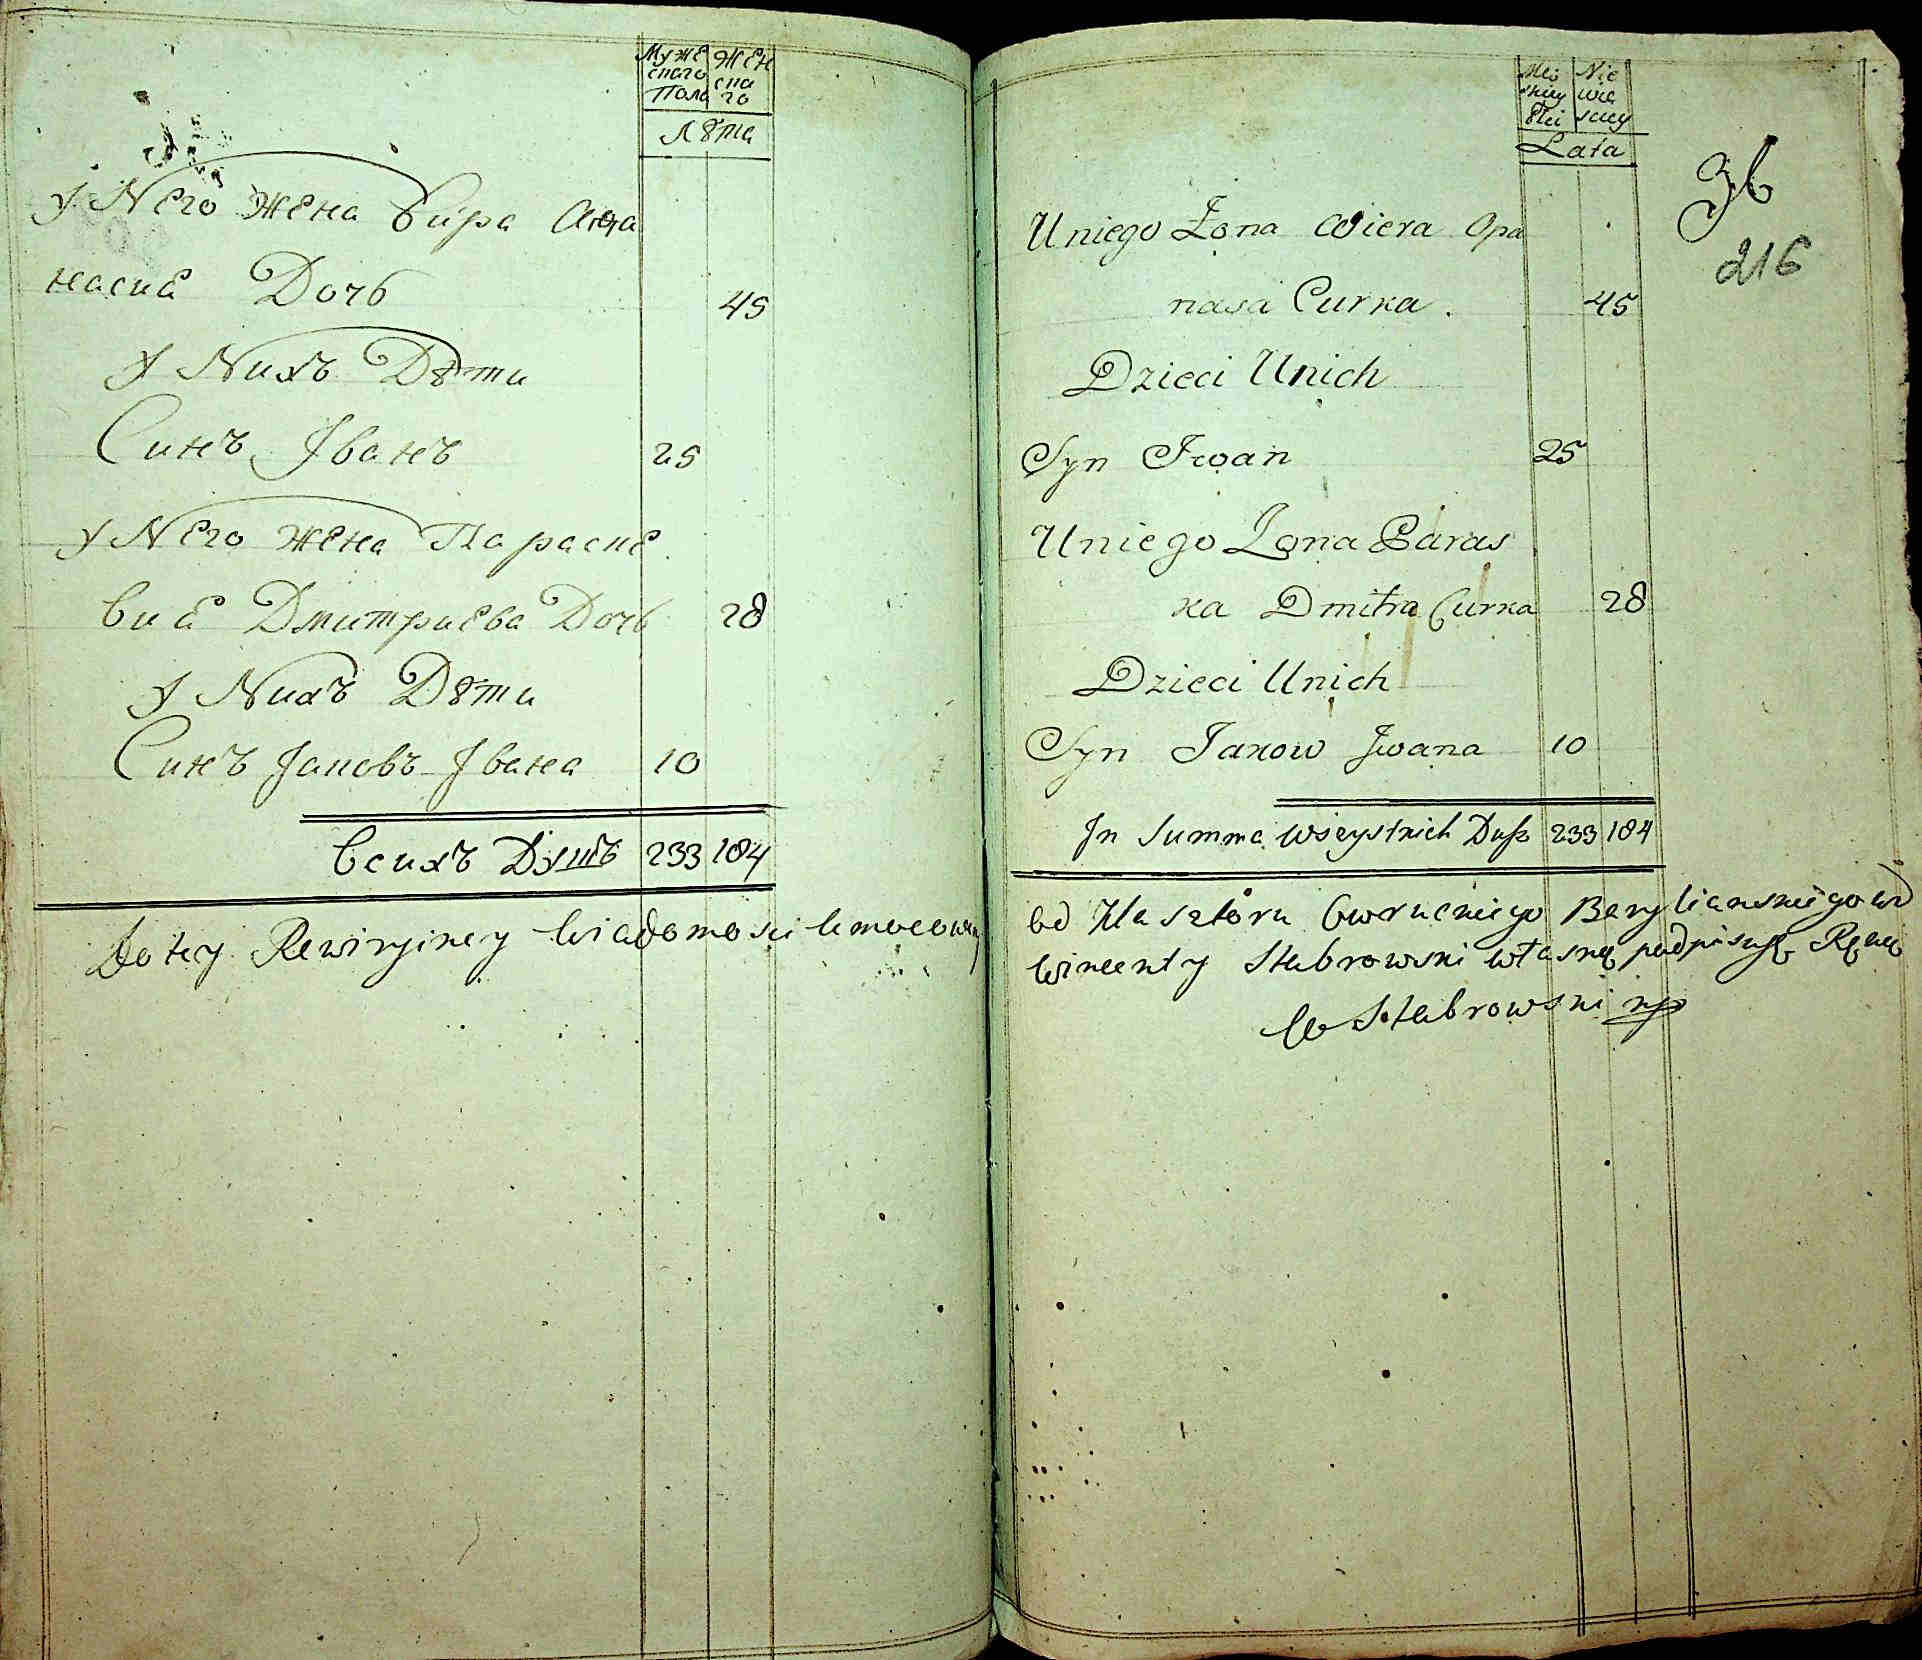 Муже ЖЕН
скаго ска
Пола го
Лѣта
У Него жена Вира Афа
насиа Дочь 45
У Нихъ Дѣти
Синъ Іванъ 25
У Него жена Параске
виа Дмитриева Дочь 28
У Нихъ Дѣти
Синъ Іаковъ Івана 10
Всихъ Душъ 233 184
Do tey Rewizyiney Wiadomosci Umocowany
Męs Nie
skiey wie
Płci sciey
Lata
36
216
Uniego Żona Wiera Opa
nasa Curka . 45
Dzieci Unich
Syn Iwan 25
Uniego Żona Paras
ka Dmitra Curka 28
Dzieci Unich
Syn Jakow Iwana 10
In Summa wszystkich Dusz 233 184
od Klasztoru Owruckiego Bazylianskiego
Wincenty Stabrowski własną podpisuję Ręką
W Stabrowski mp